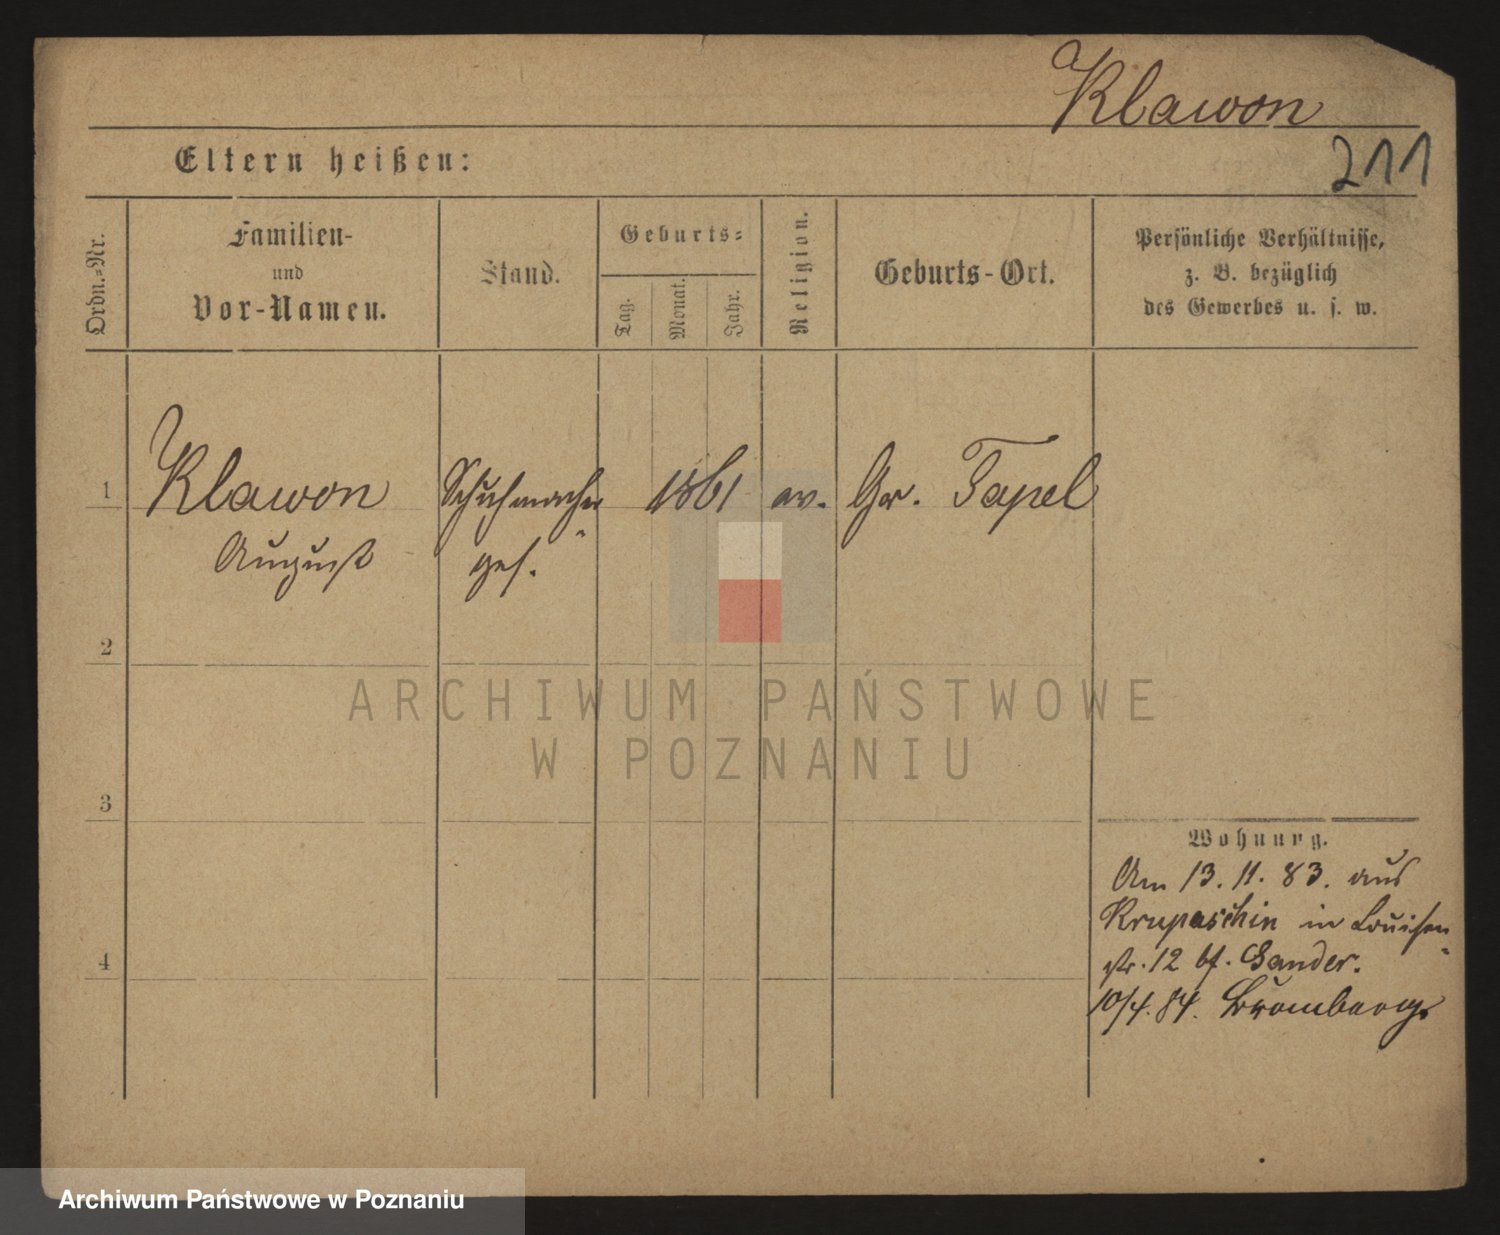 Klawon
211
Eltern heißen:
Ordn.-Nr.
Familien-
und
Vor-Namen.
Stand.
Geburts-
Tag.
Monat.
Jahr.
Religion.
Geburts-Ort.
Persönliche Verhältnisse,
z. B. bezüglich
des Gewerbes u. s. w.
1
Klawon
August
Schuhmacher
ges.
1861
ev.
Gr. Tapel
2
3
4
Wohnung.
Am 13. 11. 83. aus
in Louisen-
str. 12 bf. Sander.
10/4. 84. Bromberg.
ARCHIWUM PAŃSTWOWE
W POZNANIU
Archiwum Państwowe w Poznaniu